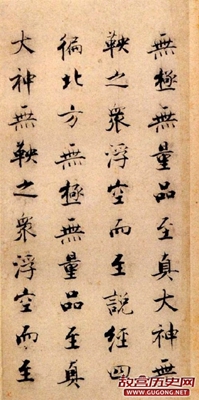 無極無量品至真大神無
鞅之衆浮空而至說經四
徧北方無極無量品至真
大神無鞅之衆浮空而至
故宫历史网
www.GUGONG.NET